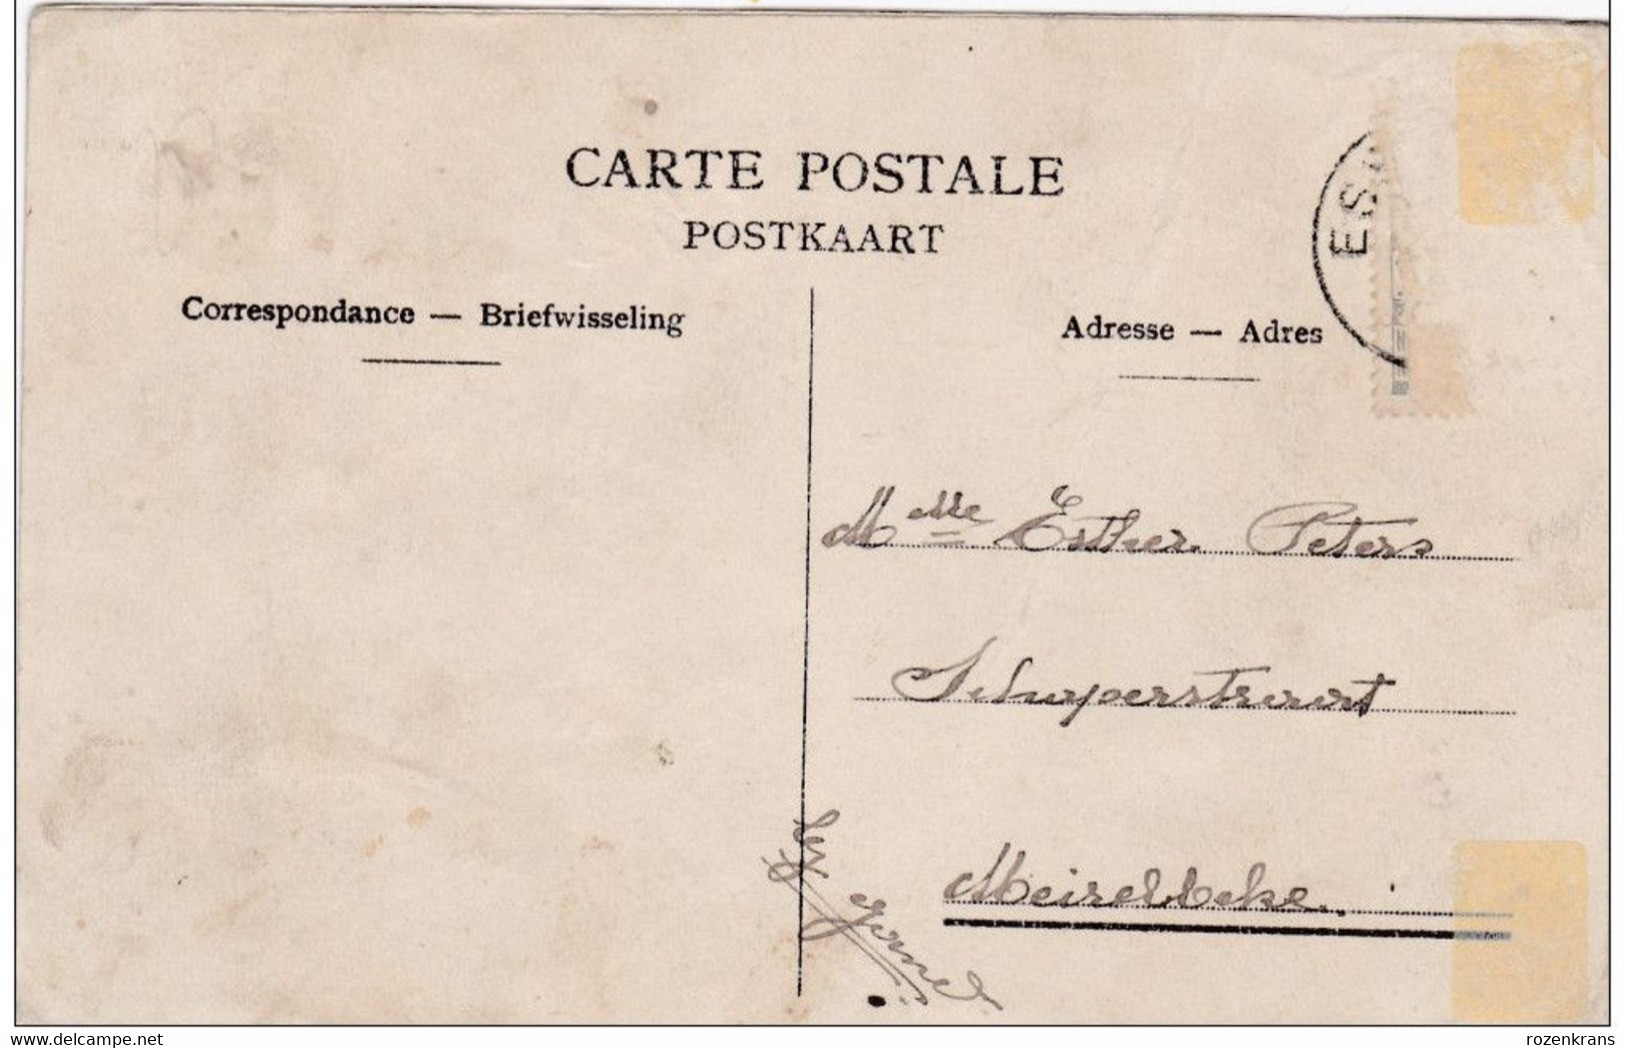 CARTE POSTALE
POSTKAART
Correspondance — Briefwisseling
Adresse — Adres
ES
Melle Esther Peters
Schuperstraat
Meirelbeke.
www.delcampe.net
rozenkrans